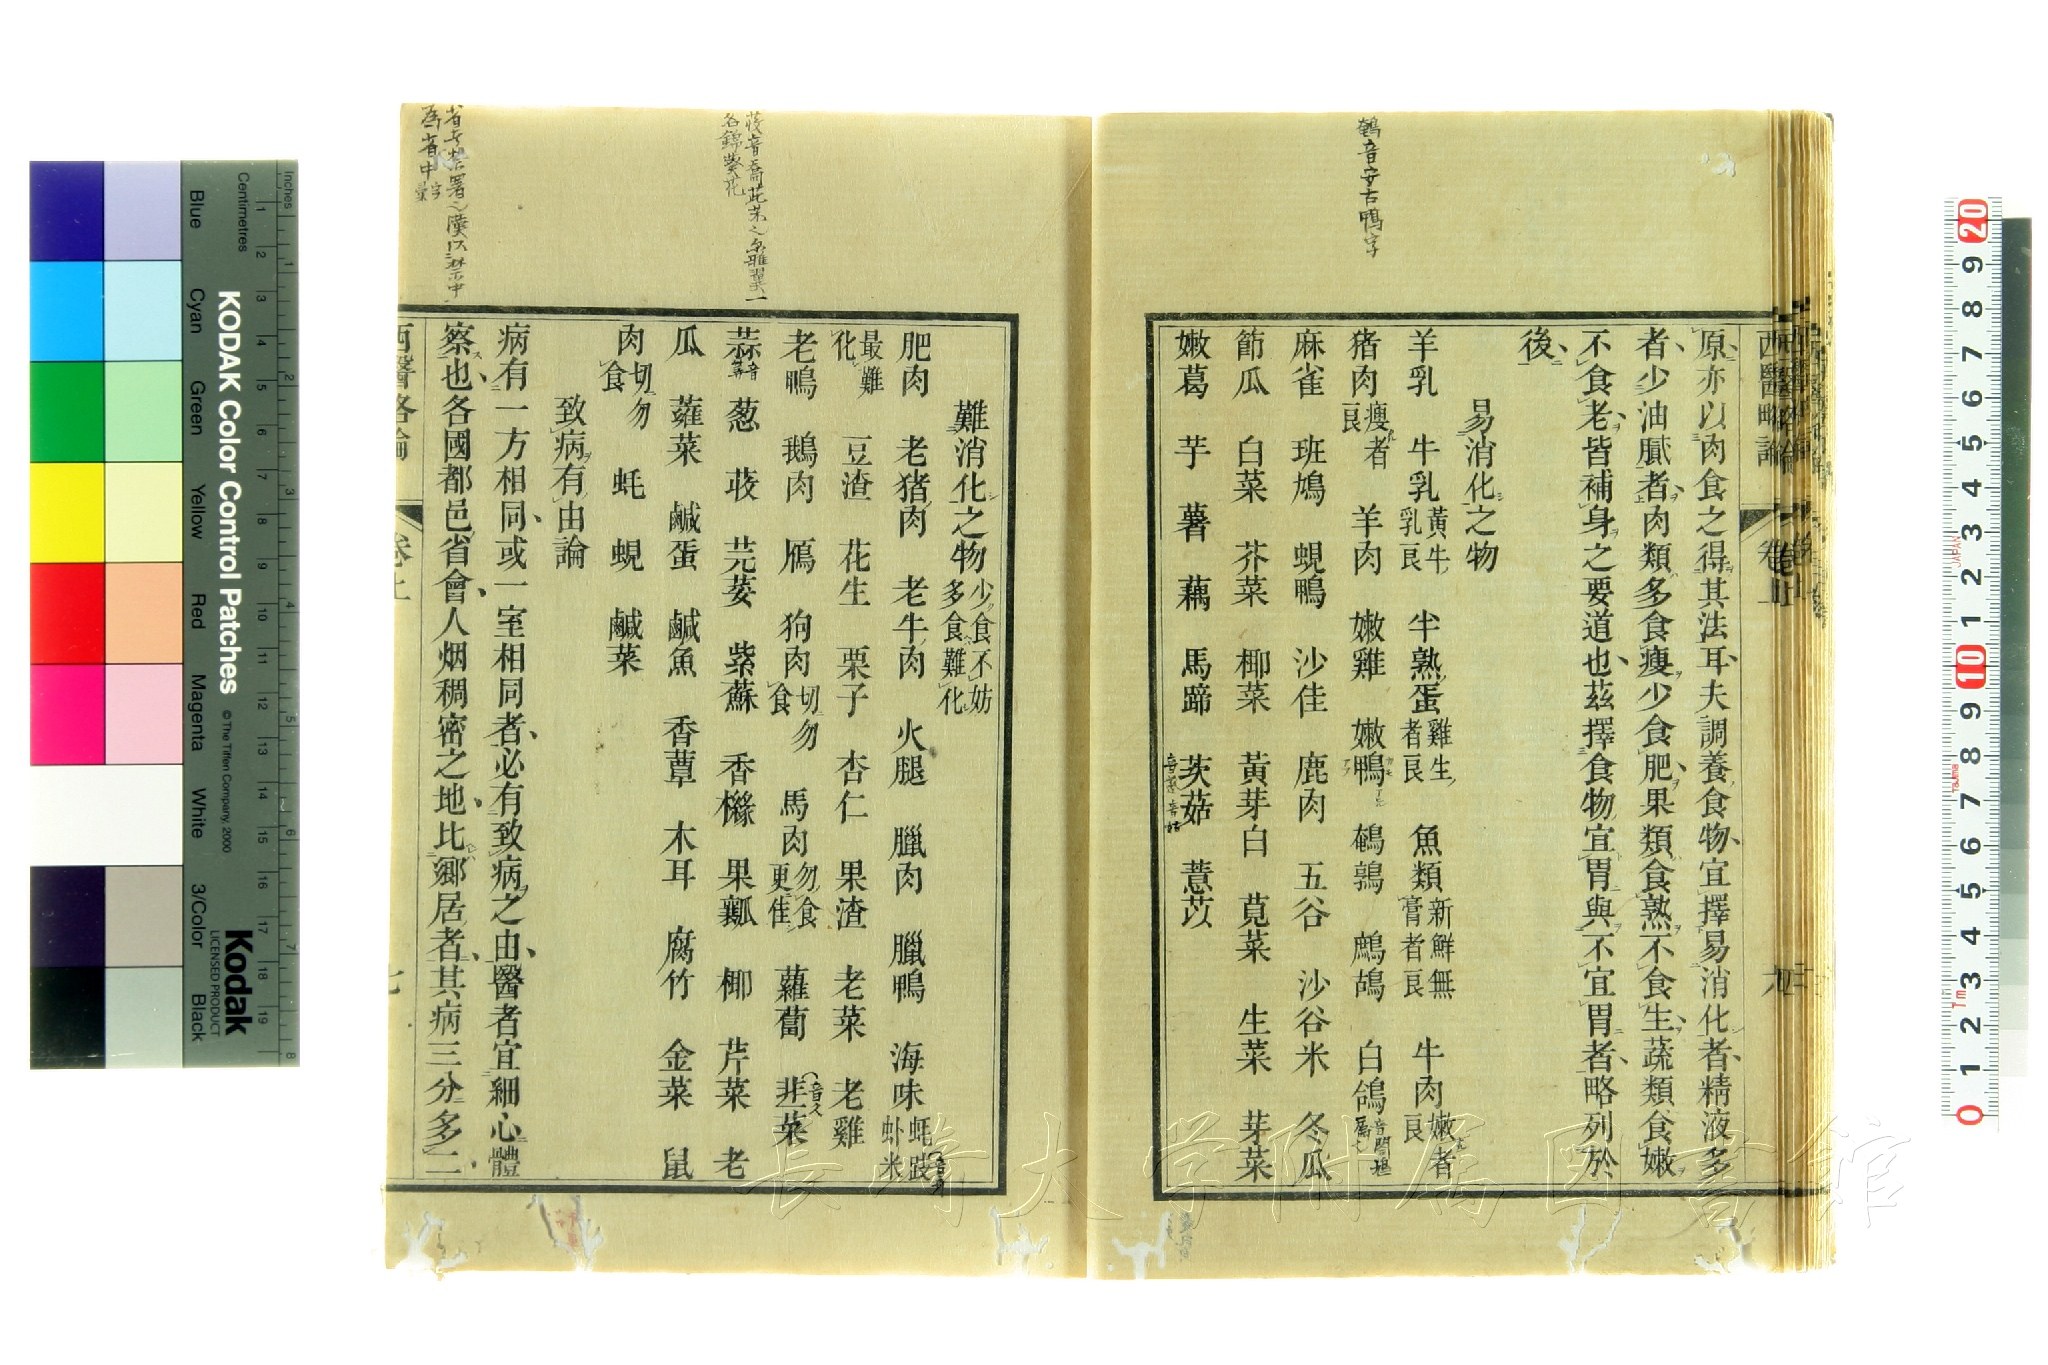 鵪音安古鴨字
西醫略論
卷上
原亦以肉食之得其法耳夫調養食物宜擇易消化者精液多
者少油膩者肉類多食瘦少食肥果類食熟不食生蔬類食嫩
不食老皆補身之要道也茲擇食物宜胃與不宜胃者略列於
後
易消化之物
羊乳 牛乳 黃牛乳良 半熟蛋 雞生者良 魚類 新鮮無膏者良 牛肉 嫩者良
猪肉 瘦者良 羊肉 嫩雞 嫩鴨 鵪鶉 鷓鴣 白鴿
麻雀 班鳩 蜆鴨 沙佳 鹿肉 五谷 沙谷米 冬瓜
節瓜 白菜 芥菜 椰菜 黃芽白 莧菜 生菜 芽菜
嫩葛 芋 薯 藕 馬蹄 茨菇 薏苡
難消化之物 少食不妨多食難化
肥肉 老猪肉 老牛肉 火腿 臘肉 臘鴨 海味 蚝豉蝦米
最難化 豆渣 花生 栗子 杏仁 果渣 老菜 老雞
老鴨 鵝肉 鴈 狗肉 切勿食 馬肉 勿食更佳 蘿蔔 韭菜 音久
蒜 葱 荍 芫荽 紫蘇 香櫞 果瓤 椰 芹菜 老
瓜 蕹菜 鹹蛋 鹹魚 香蕈 木耳 腐竹 金菜 鼠
肉 切勿食 蚝 蜆 鹹菜
致病有由論
病有一方相同或一室相同者必有致病之由醫者宜細心體
察也各國都邑省會人烟稠密之地比鄉居者其病三分多二
西醫略論
卷上
七
KODAK Color Control Patches
© The Tiffen Company, 2000
Kodak
LICENSED PRODUCT
Inches
Centimetres
Blue
Cyan
Green
Yellow
Red
Magenta
White
3/Color
Black
長崎大学附属図書館
JAPAN